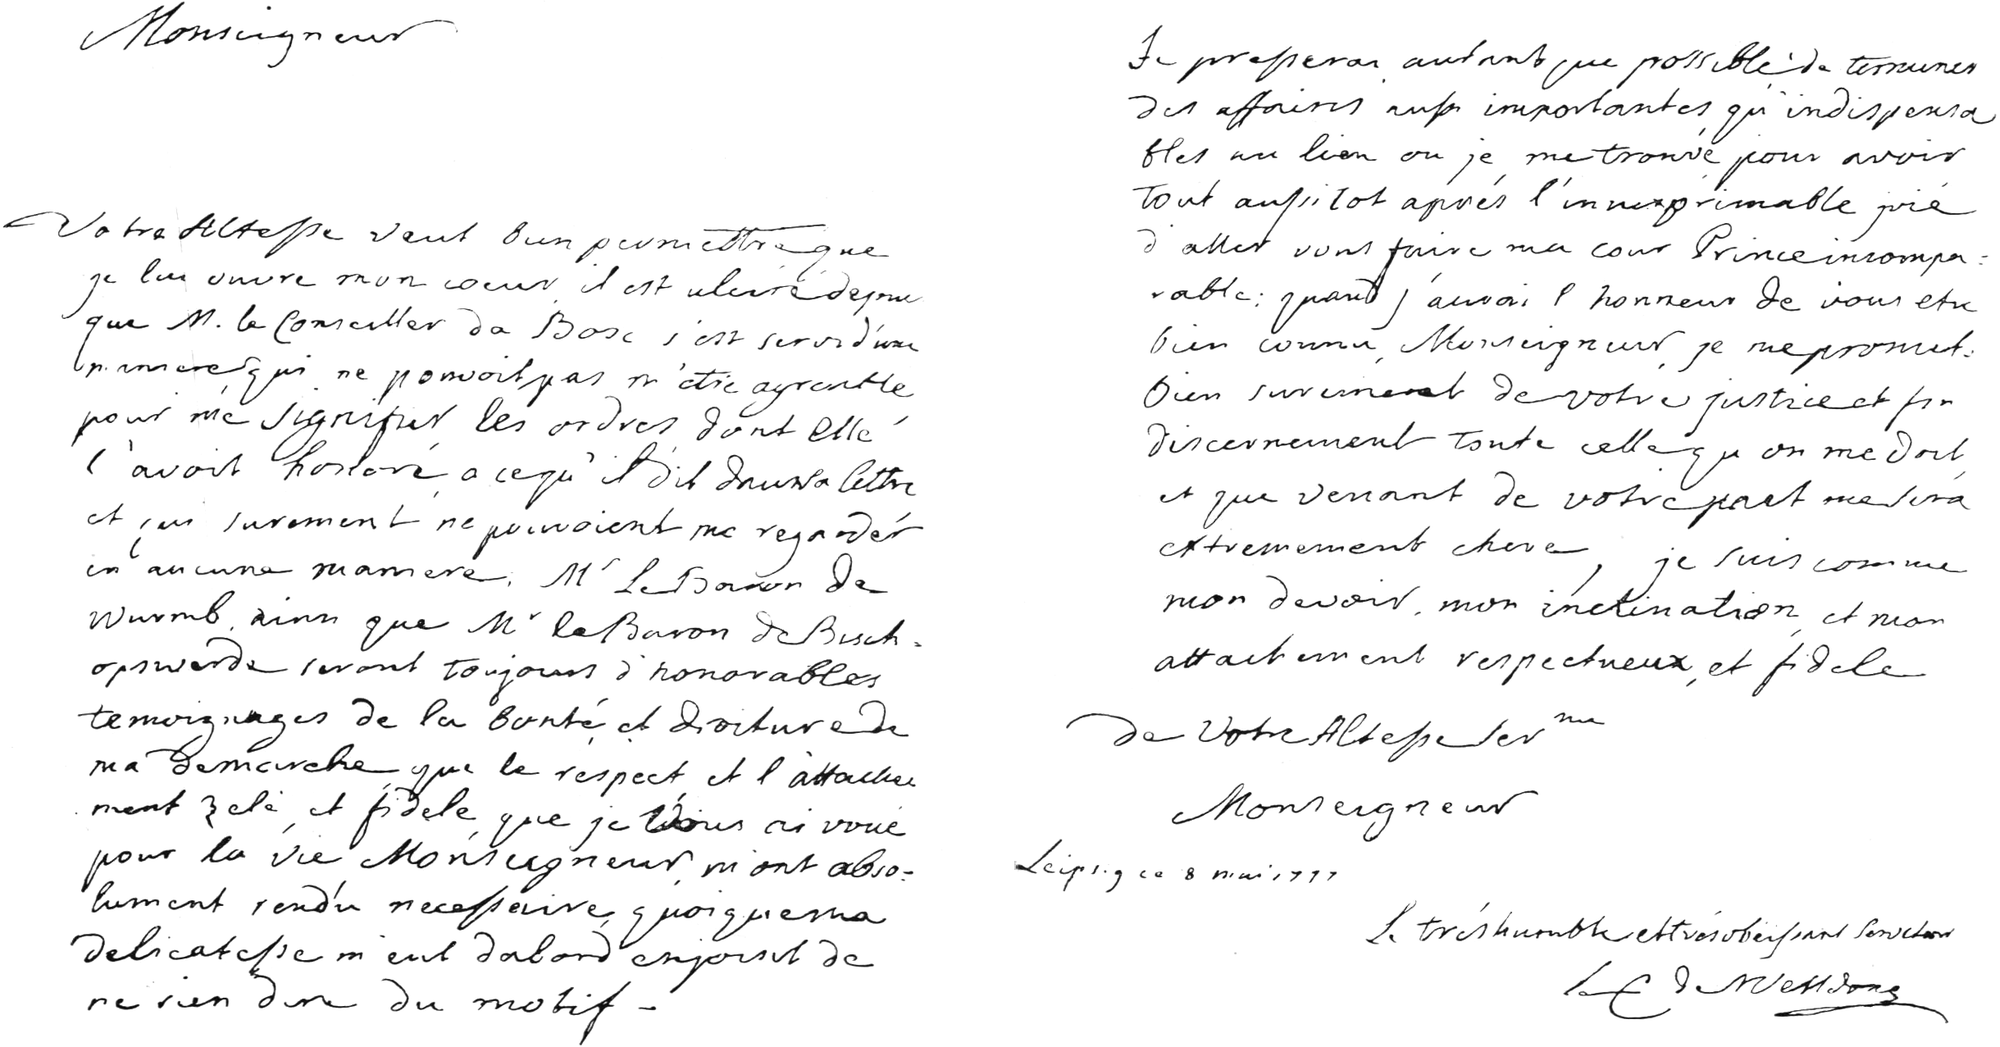 Monseigneur
Votre Altesse veut bien permettre que
je lui ouvre mon coeur, il est ulceré depuis
que M. le Conseiller de Bosc s'est servi d'une
maniere, qui ne pouvoit pas m'etre agreable
pour me signifier les ordres dont elle
l'avoit honoré, a ce qu'il dit dans sa lettre
et qui surement ne pouvoient me regarder
en aucune maniere. Mr Le Baron de
Wurmb, ainsi que Mr le Baron de Bisch-
opswerde seront toujours d'honorables
temoignages de la bonté, et droiture de
ma demarche, que le respect, et l'attache
ment zelé, et fidele, que je Vous ai voué
pour la vie Monseigneur, m'ont abso-
lument rendu necessaire, quoique ma
delicatesse m'eut dabord enjoint de
ne rien dire du motif -
Je presserai autant que possible de terminer
des affaires aussi importantes qu'indispensa
bles au lieu ou je me trouve pour avoir
tout aussitot après l'innexprimable joie
d'aller vous faire ma cour Prince incompa-
rable: quand j'aurai l'honneur de vous etre
bien connu, Monseigneur, je me promet-
bien surement de votre justice et fin
discernement toute celle qu'on me doit,
et que venant de votre part me sera
extremement chere, je suis comme
mon devoir, mon inclination, et mon
attachement respectueux, et fidele
de Votre Altesse Ser me
Monseigneur
Leipsig ce 8 mai 1777
Le tréshumble et trésobeissant Serviteur
le C de Welldone